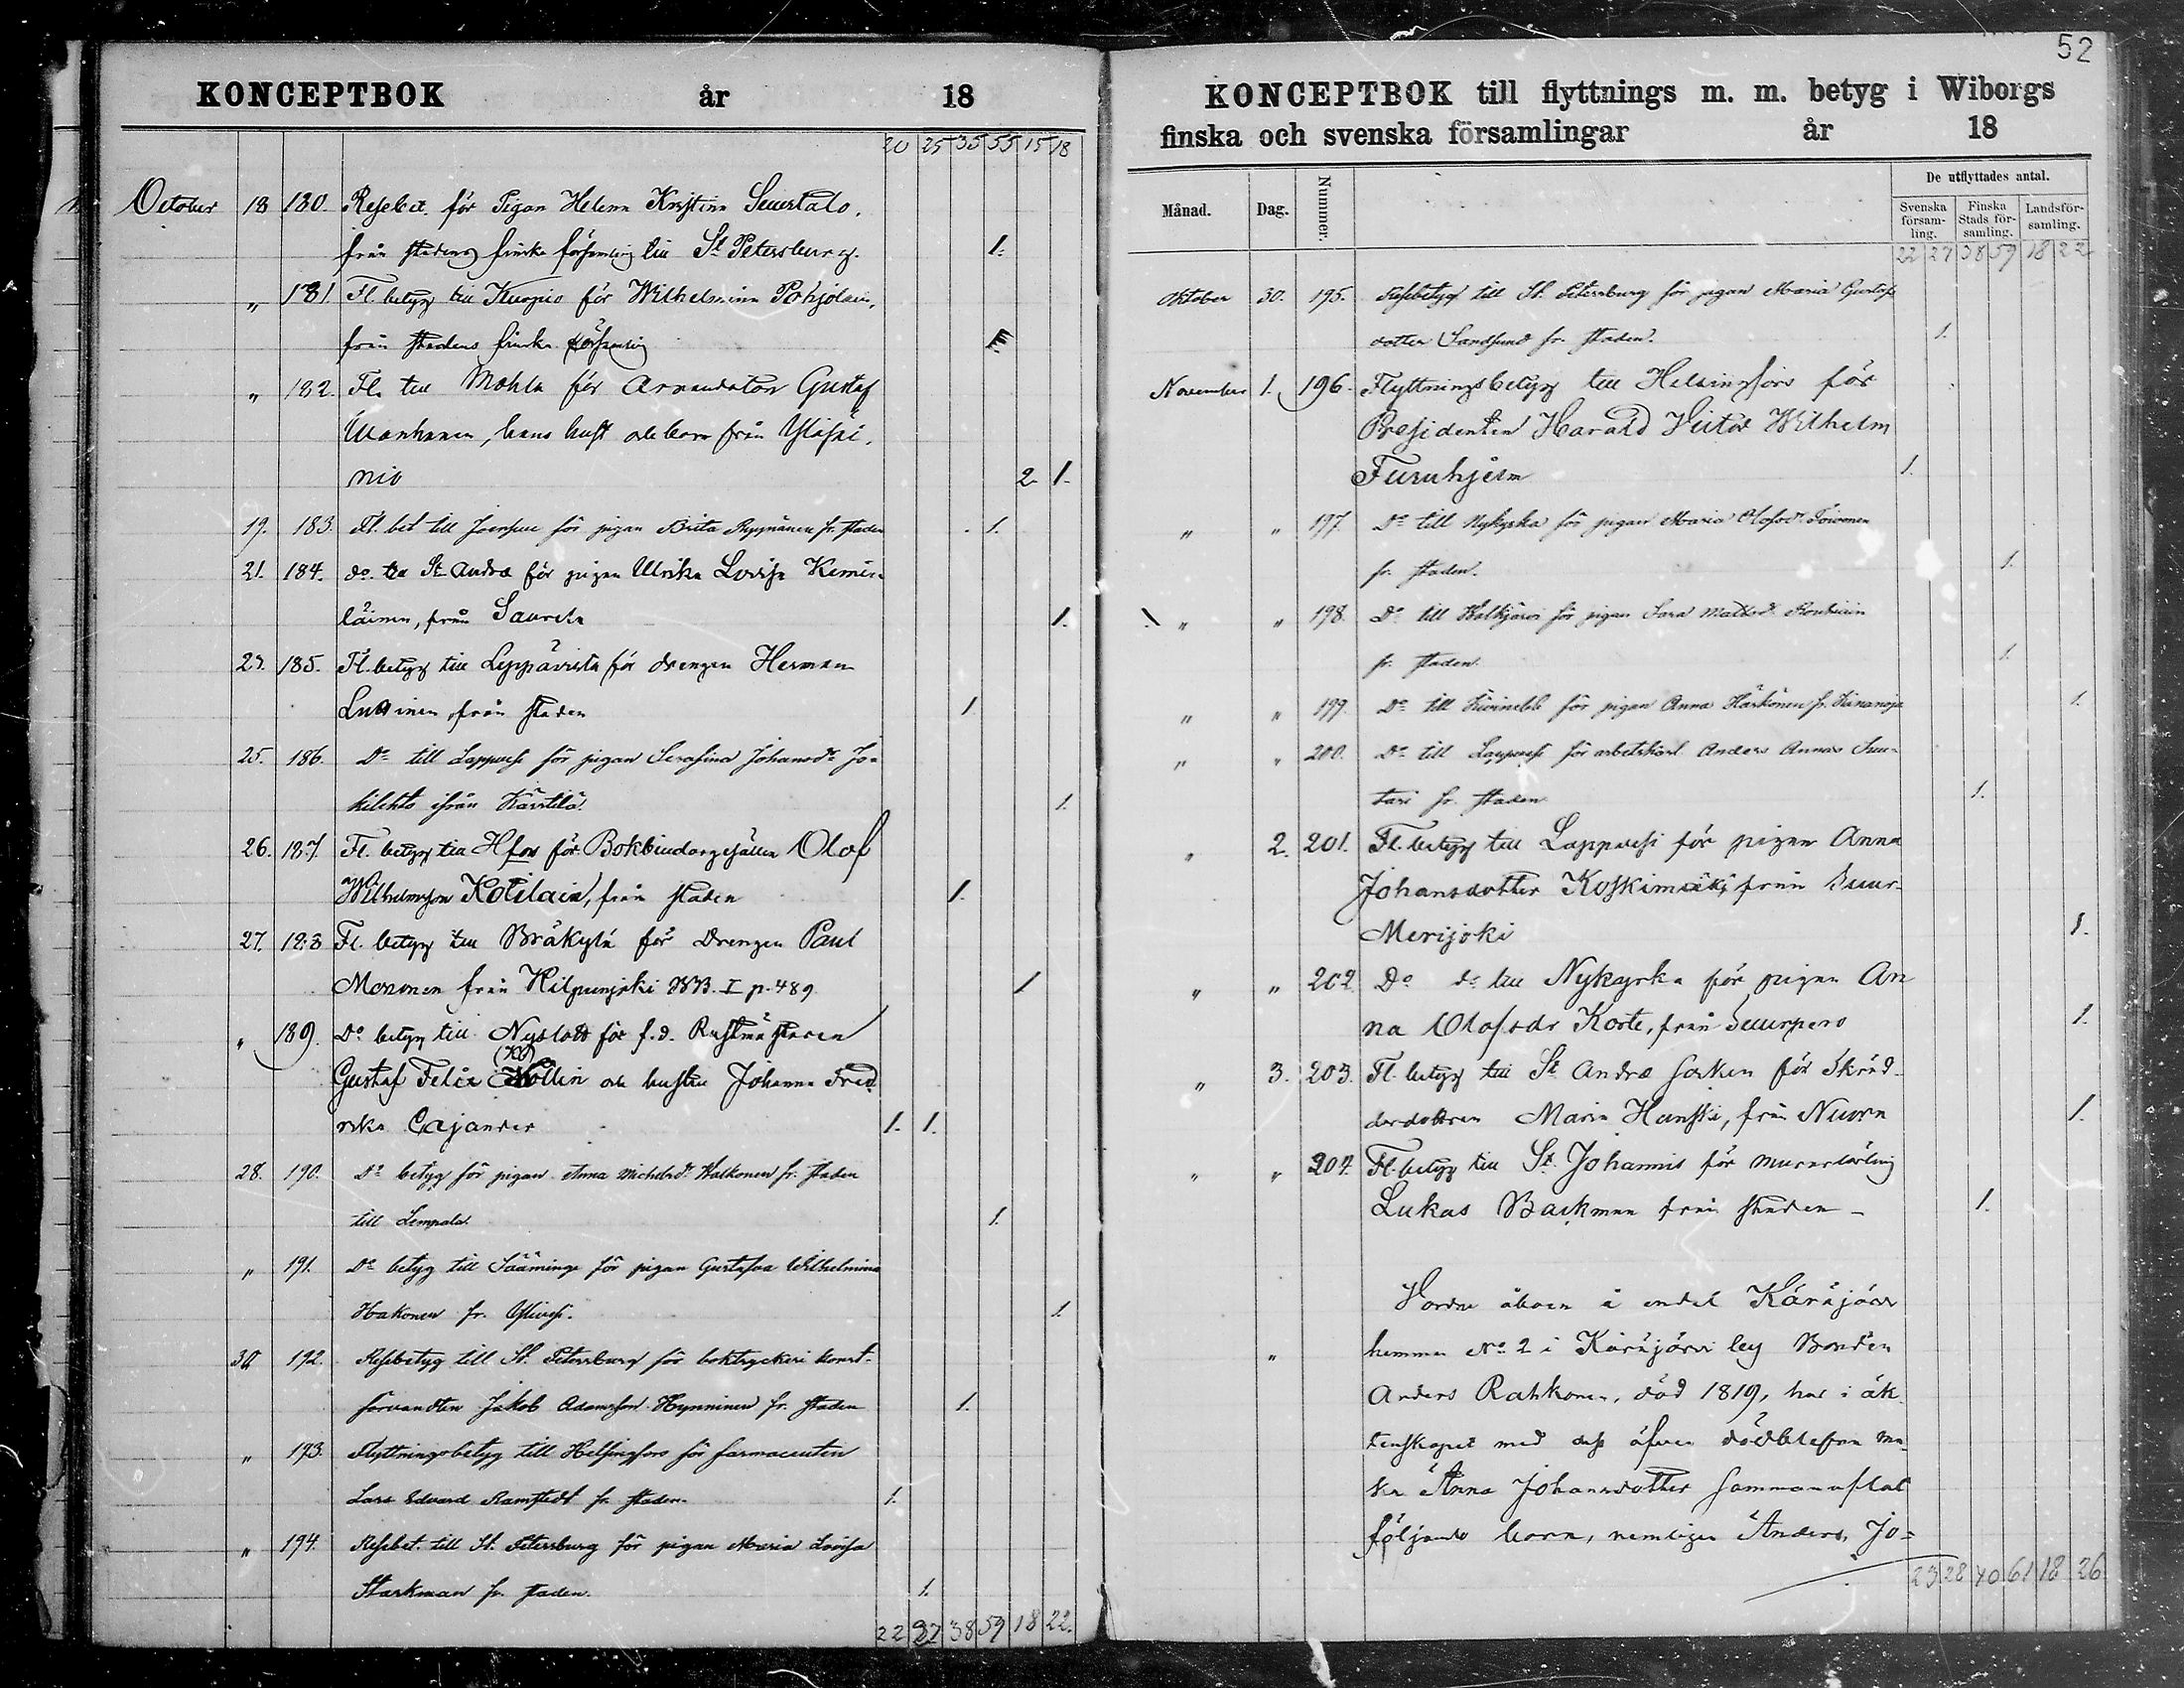 KONCEPTBOK år 18
20 25 35 55 15 18
October 18 180. Resebet. för Pigan Helena Kristina Seuertalo.
från stadens finska församling till St Petersburg. 1.
" 181 Fl. betyg till Kuopio för Wilhelmina Pohjolain,
från stadens finska församling
" 182. Fl. till Mohla för Arrendatorn Gustaf
hans hust och barn från Yläsäi,
niö 2. 1.
19. 183. Fl. bet till Joensuu för pigan Brita Reponänen fr. staden 1.
21. 184. do. till St Andræ för pigan Ulrika Lovisa Kemi-
läinen, från Saarela 1.
23. 185. Fl. betyg till Leppävirta för drengen Herman
från staden 1
25. 186. Do till Lappvesi för pigan Serafina Johansdr Jo-
kilehto ifrån Kärstilä. 1.
26. 187. Fl. betyg till Hfors för Bokbindargesällen Olof
Wilhelmsson Kotilain, från staden 1.
27. 188 Fl. betyg till Bräkylä för Drengen Paul
Mononen från Kilpeenjoki KB. I p. 489 1
" 189. Do betyg till Nyslott för f.d. Rustmästaren
Gustaf Felix Nollin och hustru Johanna Fred
rika Cajander 1. 1.
28. 190. Do betyg för pigan Anna Michelsdr Walkonen fr. staden
till Lempala. 1.
" 191. Do betyg till Sääminge för pigan Gustafva Wilhelmina
Hakonen fr. 1.
30 192. Resebetyg till St. Petersburg för boktryckeri konst-
förvandten Jakob Adamsson Hynninen fr. staden 1.
" 193. Flyttningsbetyg till Helsingfors för farmaceuten
Lars Edvard Ramstedt fr. staden. 1.
" 194. Resebet. till St. Petersburg för pigan Maria Lovisa
Starkman fr. staden. 1.
22 27 38 59 18 22.
52
KONCEPTBOK till flyttnings m. m. betyg i Wiborgs
finska och svenska församlingar år 18
Månad. Dag. Nummer. De utflyttades antal.
Svenska försam-ling. Finska Stads för-samling. Landsför-samling.
22 27 38 59 18 22
Oktober 30. 195. Resebetyg till St. Petersburg för pigan Maria Gustafs
dotter Sandsund fr. staden. 1.
November 1. 196. Flyttningsbetyg till Helsingfors för
Presidenten Harald Victor Wilhelm
Furuhjelm 1.
" " 197. Do till Nykyrka för pigan Maria Olofsdr Toivonen
fr. staden. 1.
" " 198. Do till Walkjärvi för pigan Sara Mattsd.
fr. staden. 1.
" " 199. Do till Kivinebb för pigan Anna Härkönen fr. 1.
" " 200. Do till Lappvesi för arbetskarl Anders Annas Suu-
tari fr. staden 1.
" 2. 201. Fl. betyg till Lappvesi för pigan Anna
Johansdotter Koskimäki från Suur-
Merijoki 1.
" " 202 Do do till Nykyrka för pigan An
na Olofsdr Koste, från Suurpero 1.
" 3. 203. Fl. betyg till St Andræ socken för Skräd-
dardottren Maria Hanski, från Nuora 1.
" " 204. Fl. betyg till St. Johannis för murarlärling
Lukas Backman från staden - 1.
Vordne åboen å endel Käräjärvi
" hemman No 2 i Käräjärvi by Bonden
Anders Rahkonen, död 1819, har i äk
tenskapet med dess äfven dödblefvna ma
ka Anna Johansdotter sammanaflat
följande barn, nemligen Anders, Jo-
23 28 40 61 18 26